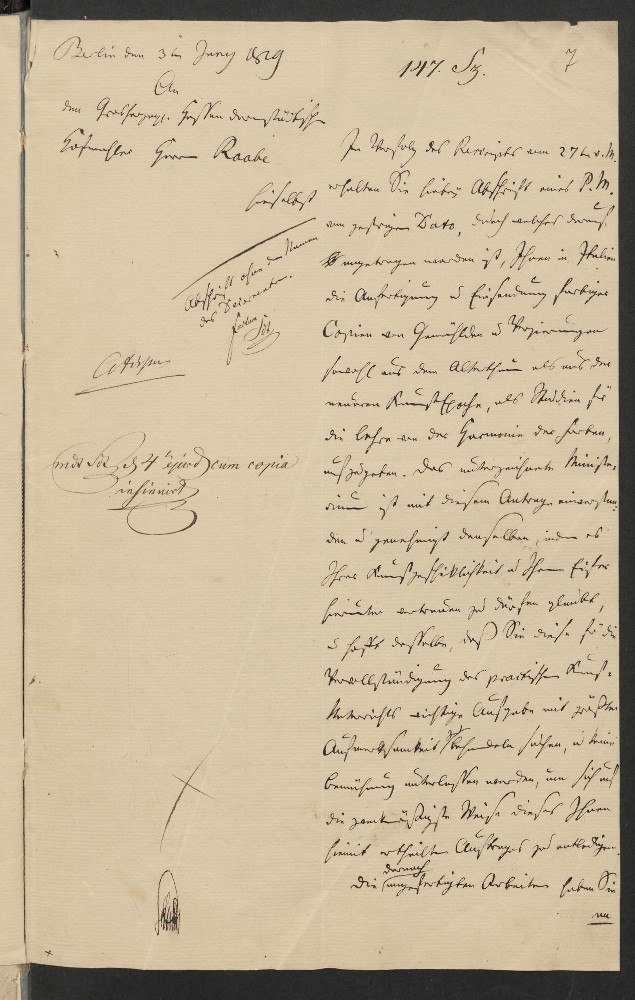 Berlin den 3ten Juny 1819
147. Sz.
7
An
den Grosherzogl. Hessen darmstädtischen
Hofmahler Herrn Raabe
hieselbst
Abschrift ohne den Namen
des Decernenten.
cum copia
In Verfolg des Rescripts vom 27ten v. M.
erhalten Sie hiebey Abschrift eines P. M.
vom gestrigen Dato, durch welches darauf
angetragen worden ist, Ihnen in Italien
die Anfertigung u Einsendung farbiger
Copien von Gemählden u Verzierungen
sowohl aus dem Alterthum als aus der
neueren KunstEpoche, als Studien für
die Lehre von der Harmonie der Farben,
aufzugeben. Das unterzeichnete Ministe-
rium ist mit diesem Antrage einverstan-
den u genehmigt denselben, indem es
Ihrer Kunstgeschiklichkeit u Ihrem Eifer
hierunter vertrauen zu dürfen glaubt,
u hofft dasselbe, daß Sie diese für die
Vervollständigung des practischen Kunst-
Unterrichts wichtige Aufgabe mit größter
Aufmerksamkeit behandeln suchen, u keine
Bemühung unterlassen werden, um sich auf
die zweckmäßigste Weise dieses Ihnen
hiemit ertheilten Auftrages zu entledigen.
Die darnach angefertigten Arbeiten haben Sie